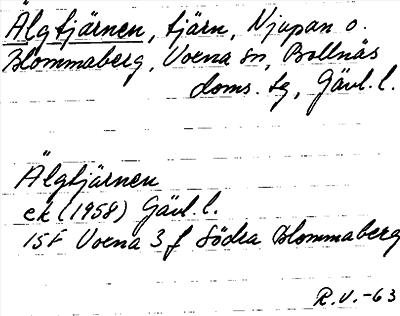 Älgtjärnen, tjärn, Njupan o.
Blommaberg, Voxna sn, Bollnäs
doms. sg, Gävl. l.
Älgtjärnen
ek (1958) Gävl. l.
15F Voxna 3 f Södra Blommaberg
R.V. -63